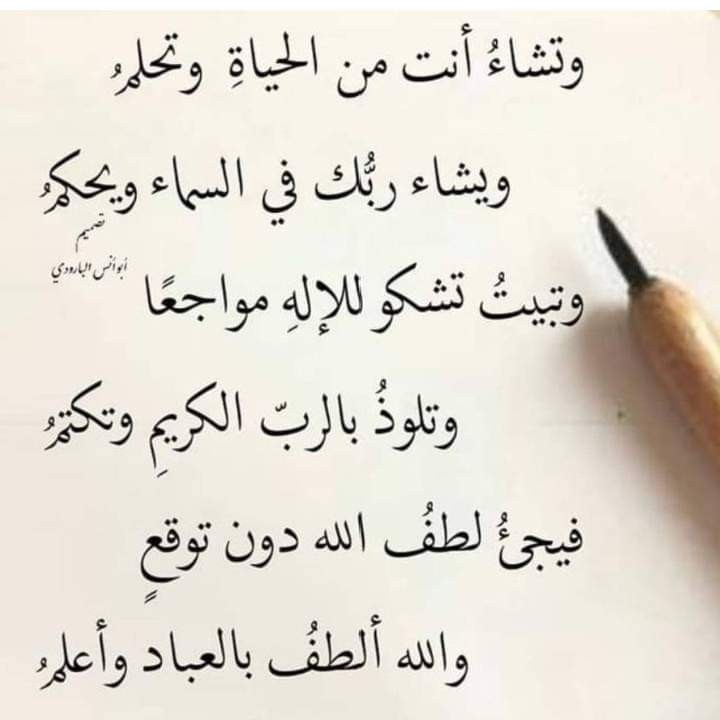 وتشاءُ أنت من الحياةِ وتحلمُ
ويشاء ربُّك في السماء ويحكمُ
تصميم
أبو أنس البارودي
وتبيتُ تشكو للإلهِ مواجعًا
وتلوذُ بالربّ الكريمِ وتكتمُ
فيجئُ لطفُ الله دون توقعٍ
والله ألطفُ بالعباد وأعلمُ